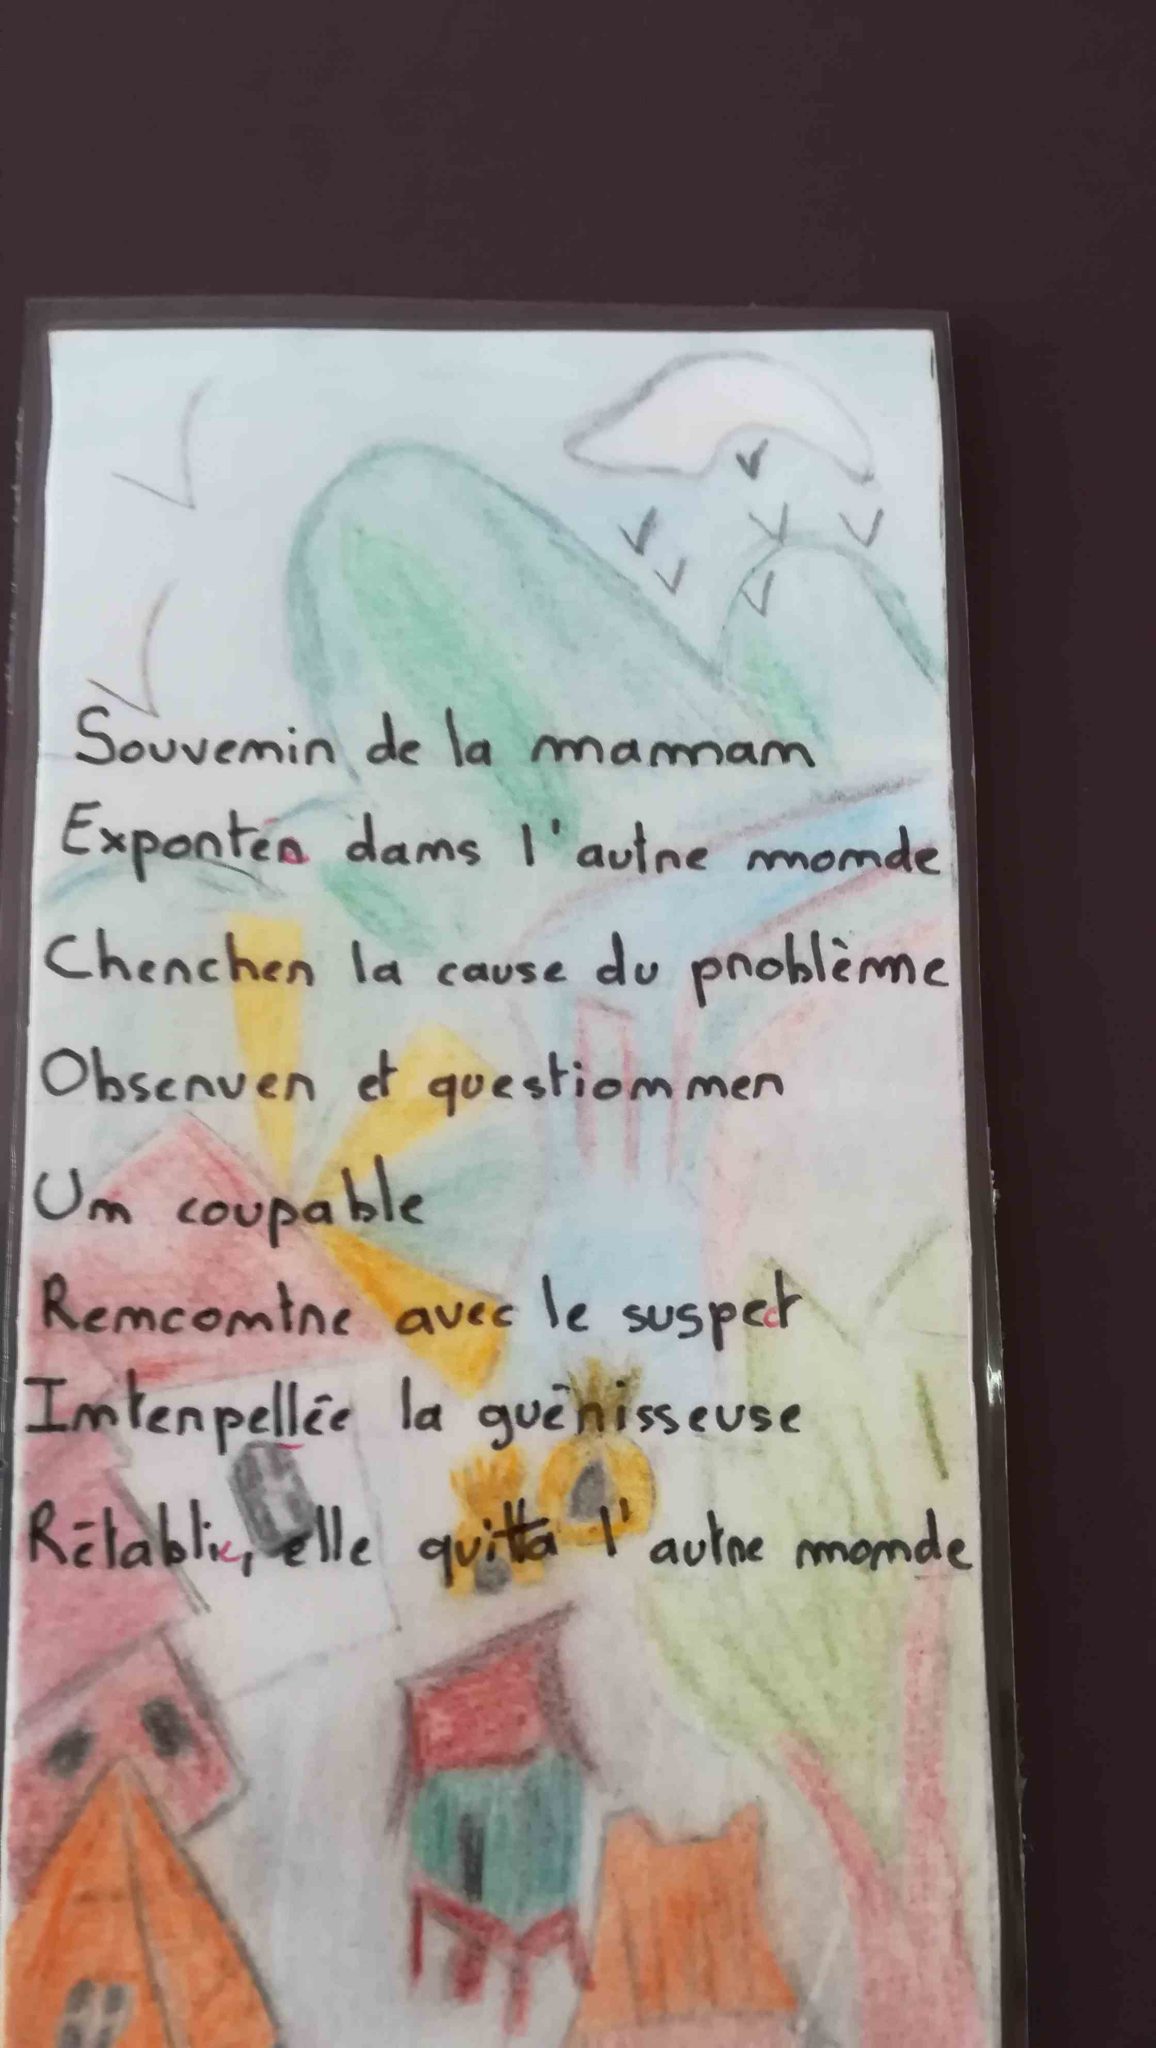 Souvenir de la maman
Exportée dans l'autre monde
Chercher la cause du problème
Observer et questionner
Un coupable
Rencontre avec le suspect
Interpellée la guérisseuse
Rétablie, elle quitta l'autre monde